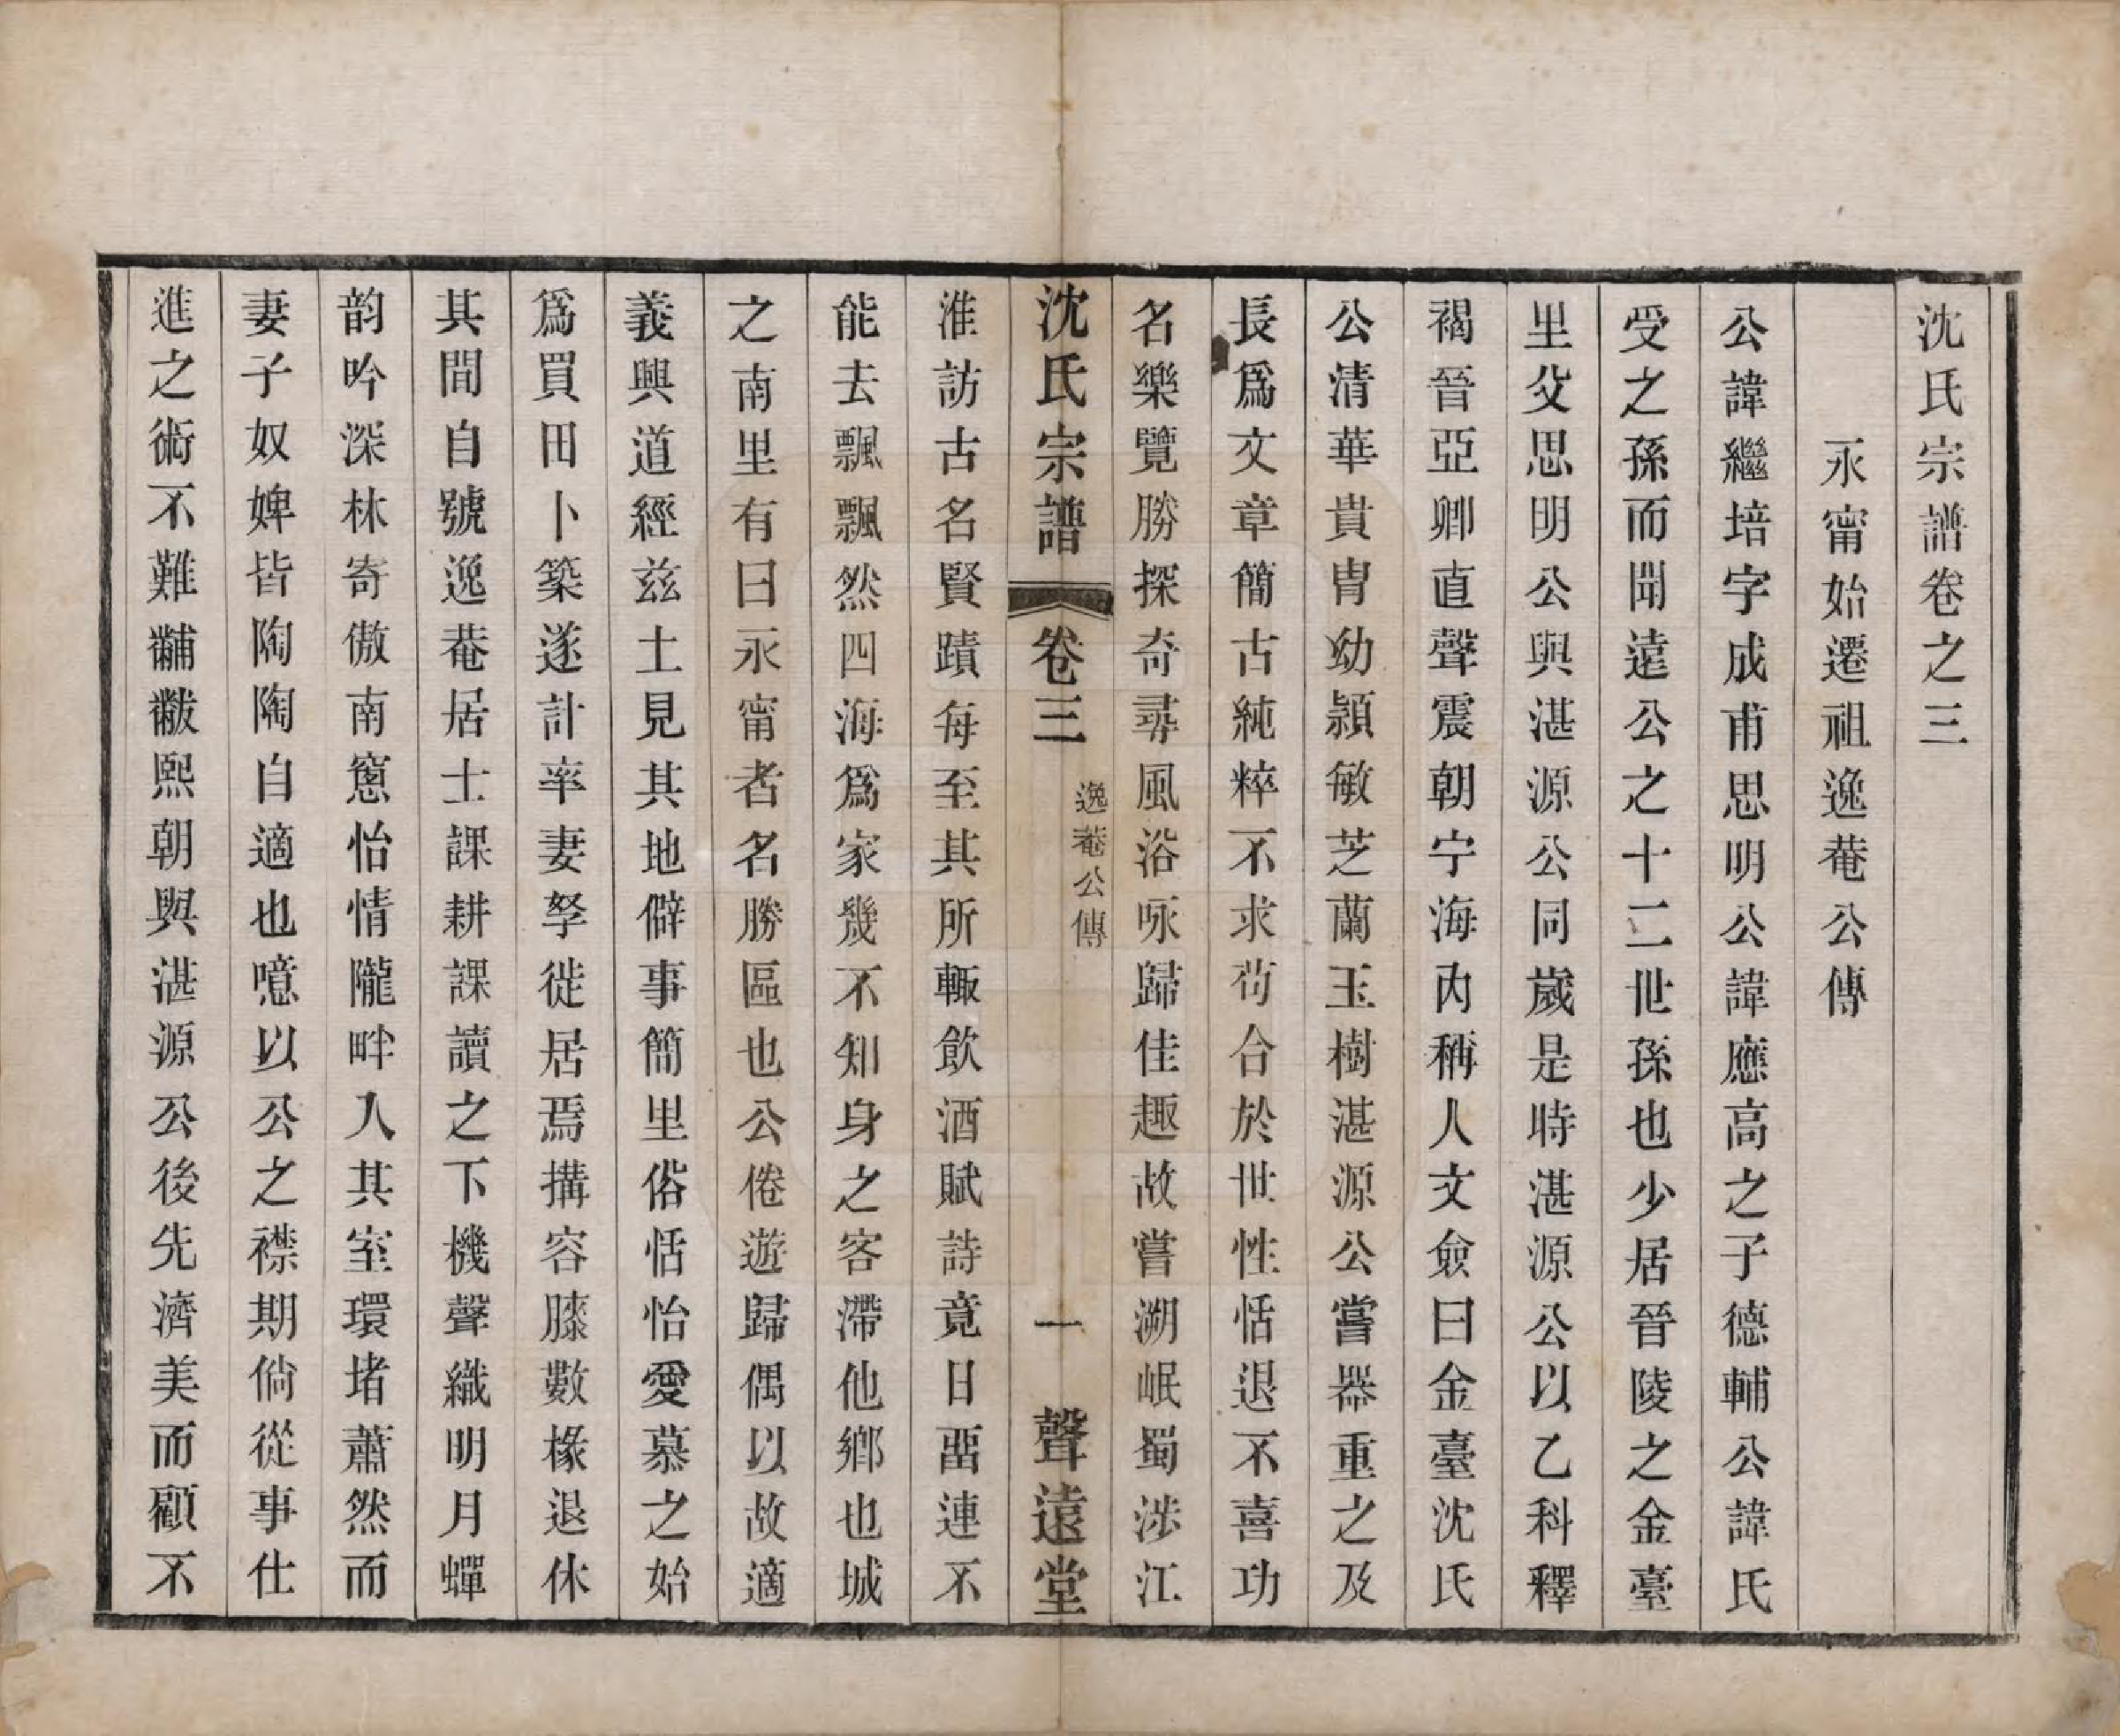 沈氏宗譜卷之三
永甯始遷祖逸菴公傳
公諱繼培字成甫思明公諱應高之子德輔公諱氏
受之孫而聞遠公之十二世孫也少居晉陵之金臺
里父思明公與湛源公同歲是時湛源公以乙科釋
褐晉亞卿直聲震朝宁海內稱人文僉曰金臺沈氏
公清華貴冑幼穎敏芝蘭玉樹湛源公嘗器重之及
長爲文章簡古純粹不求苟合於世性恬退不喜功
名樂覽勝探奇尋風浴咏歸佳趣故嘗溯岷蜀涉江
沈氏宗譜 卷三 逸菴公傳 一 聲遠堂
淮訪古名賢蹟每至其所輙飲酒賦詩竟日畱連不
能去飄飄然四海爲家幾不知身之客滯他鄉也城
之南里有曰永甯者名勝區也公倦遊歸偶以故適
義興道經茲土見其地僻事簡里俗恬怡愛慕之始
爲買田卜築遂計率妻孥徙居焉搆容膝數椽退休
其間自號逸菴居士課耕課讀之下機聲織明月蟬
韵吟深林寄傲南窻怡情隴畔人其室環堵蕭然而
妻子奴婢皆陶陶自適也噫以公之襟期倘從事仕
進之術不難黼黻熙朝與湛源公後先濟美而顧不